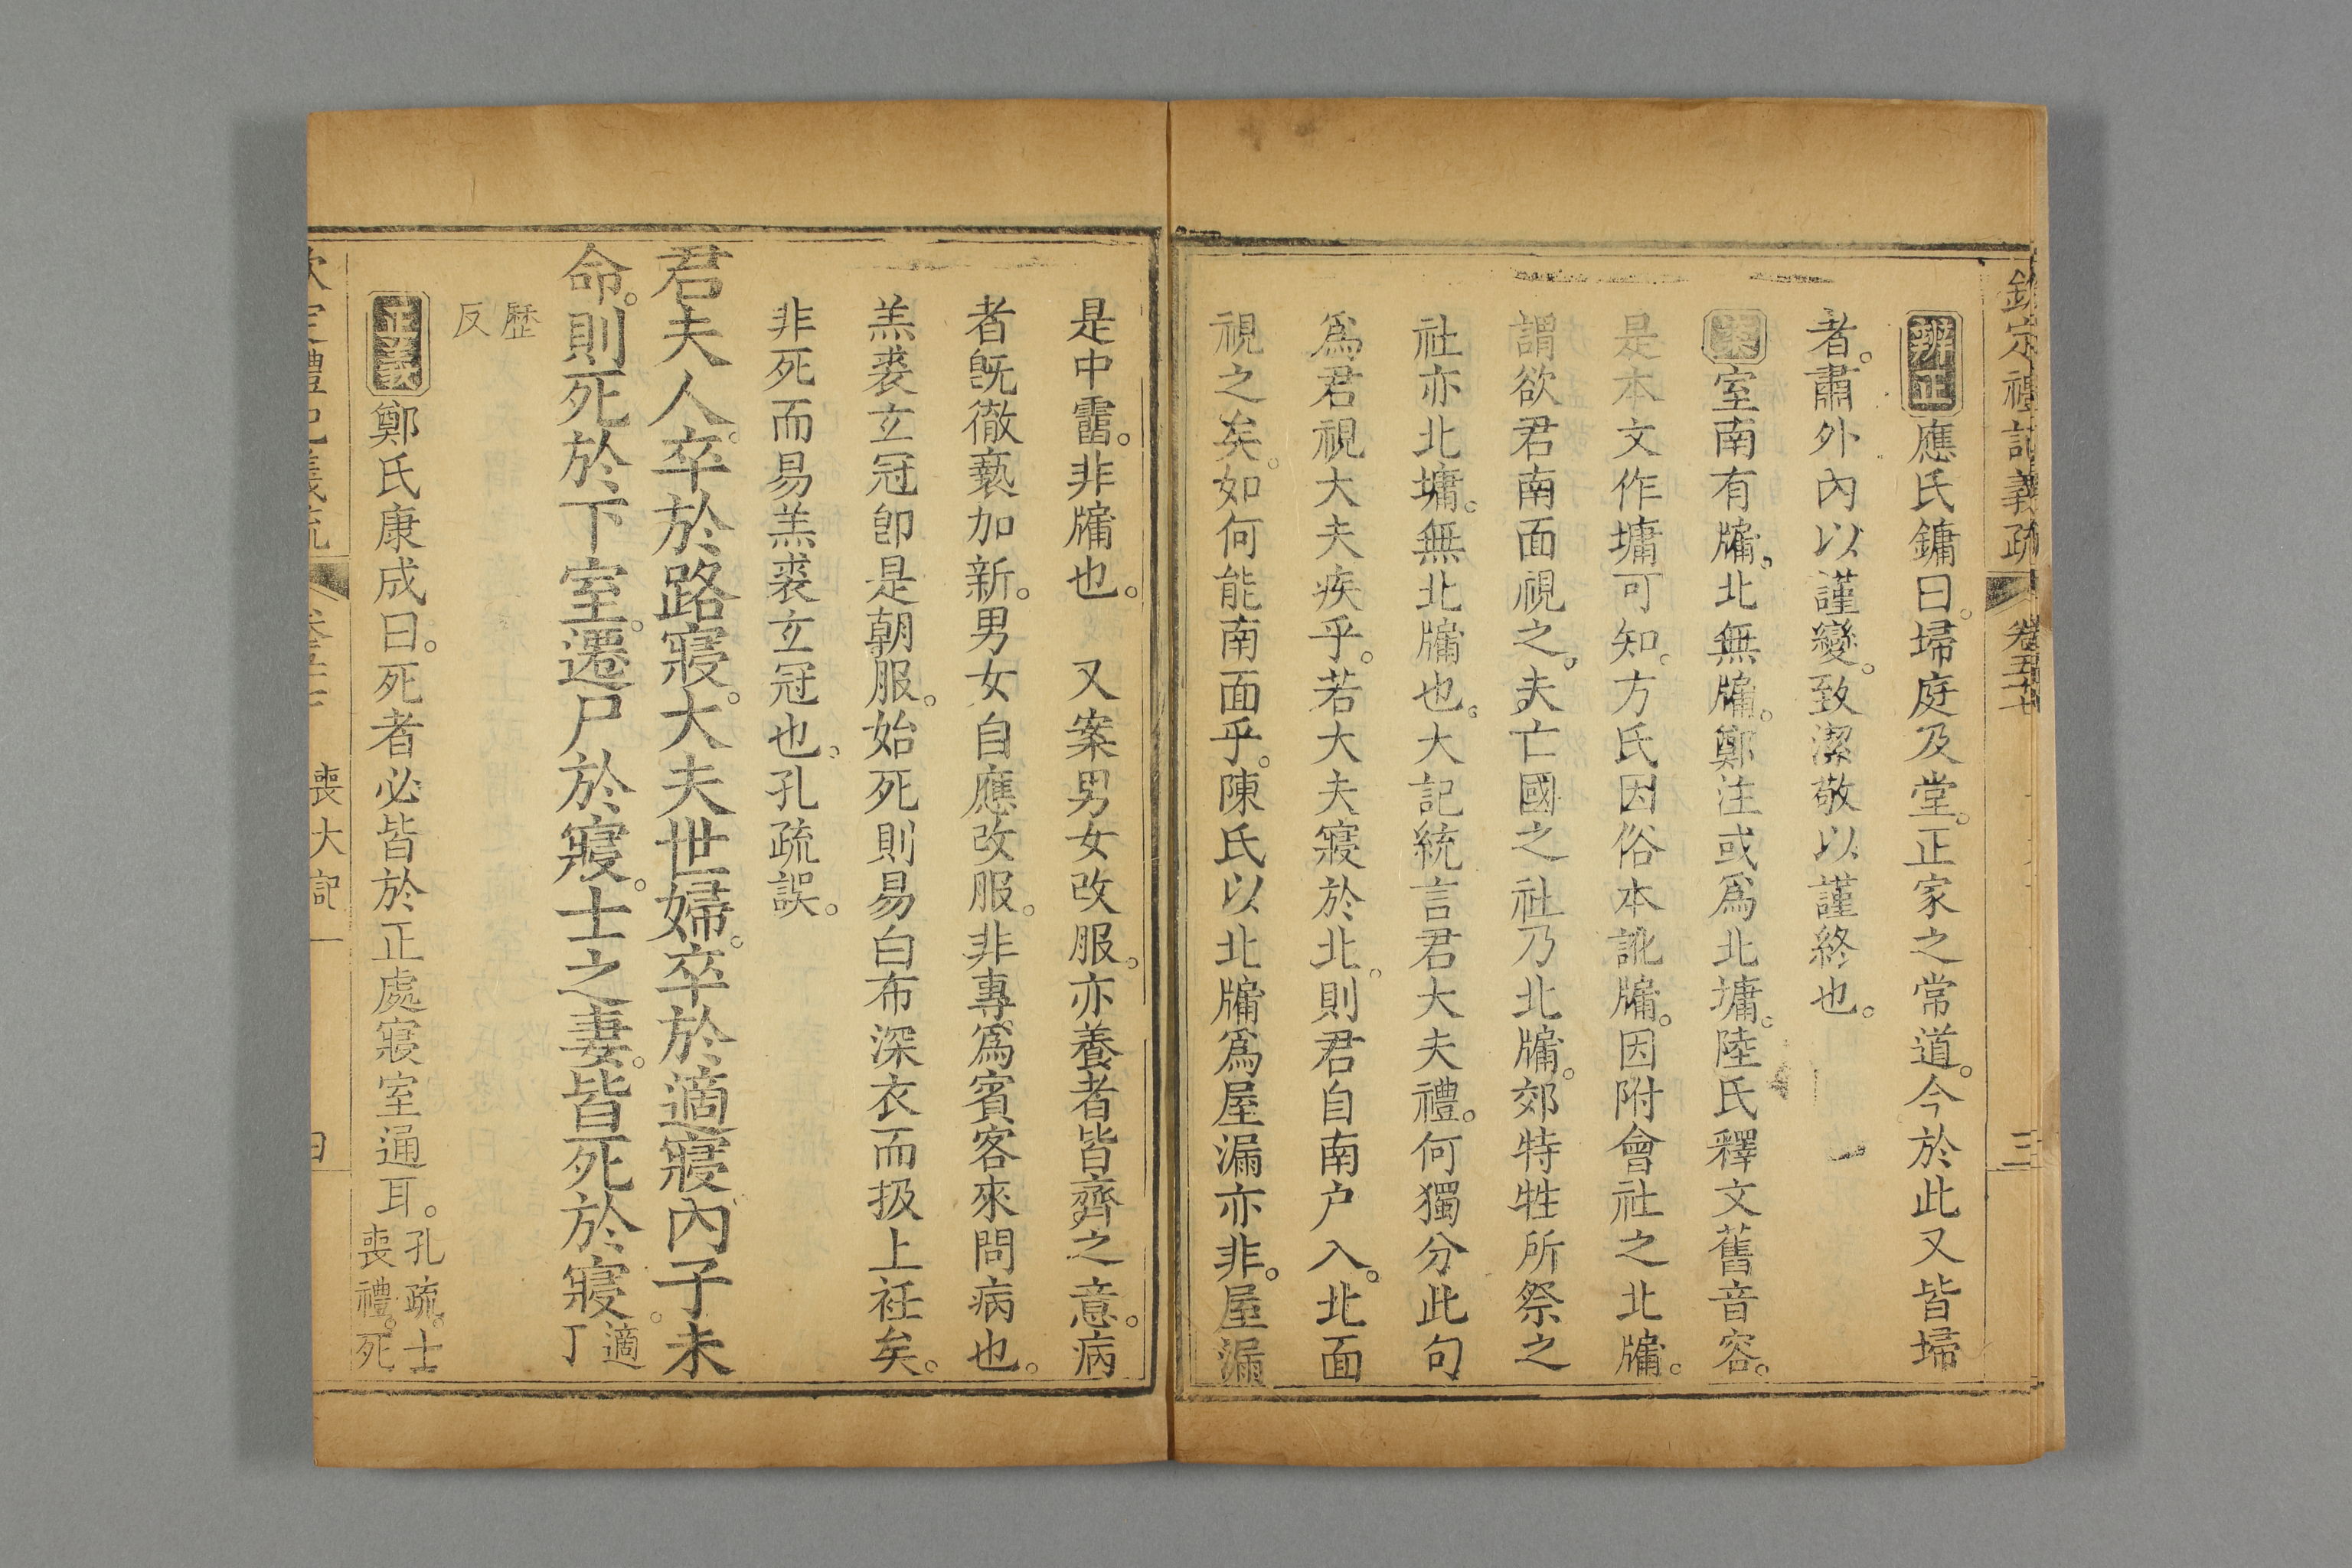 欽定禮記義疏 卷五十七 三
辨正應氏鏞曰。埽庭及堂。正家之常道。今於此又皆埽
者。肅外內以謹變。致潔敬以謹終也。
案室南有牖。北無牖。鄭注或爲北墉。陸氏釋文舊音容。
是本文作墉可知。方氏因俗本訛牖。因附會社之北牖。
謂欲君南面視之。夫亡國之社乃北牖。郊特牲所祭之
社亦北墉。無北牖也。大記統言君大夫禮。何獨分此句
爲君視大夫疾乎。若大夫寢於北。則君自南户入。北面
視之矣。如何能南面乎。陳氏以北牖爲屋漏亦非。屋漏
是中霤。非牖也。 又案男女改服。亦養者皆齊之意。病
者旣徹褻加新。男女自應改服。非專爲賓客來問病也。
羔裘玄冠卽是朝服。始死則易白布深衣而扱上衽矣。
非死而易羔裘玄冠也。孔疏誤。
君夫人。卒於路寢。大夫世婦。卒於適寢。內子未
命。則死於下室。遷尸於寢。士之妻。皆死於寢。適丁
歷反
正義鄭氏康成曰。死者必皆於正處寢室通耳。孔疏。士喪禮。死
欽定禮記義疏 喪大記一 四